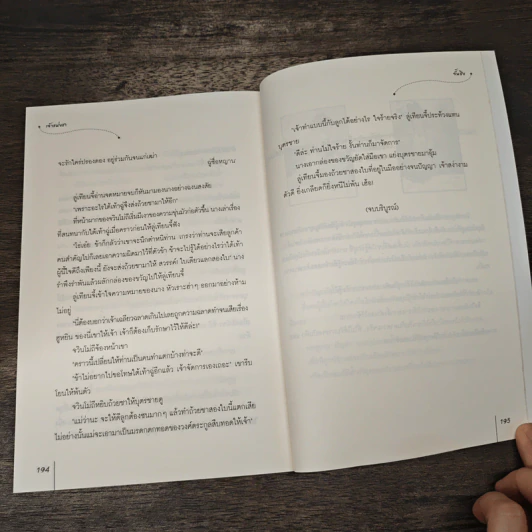 เจ้าแห่งเงา
จะรักใคร่ปรองดอง อยู่ร่วมกันจนแก่เฒ่า
ลู่เทียนจี้อ่านจดหมายจบก็หันมามองนางอย่างแฝงสงสัย
"เพราะอะไรใต้เท้าฟู่จึงส่งถ้วยชามาให้อีก"
ที่หน้ามากของจวินไม่ถึงเริ่มมีเงาของความขุ่นมัวก่อตัวขึ้น นางเล่าเรื่อง
ที่สนทนากับใต้เท้าฟู่เมื่อคราวก่อนให้ลู่เทียนจี้ฟัง
"โธ่เอ๊ย ข้าก็กลัวว่าเขาจะนึกตำหนิท่าน เกรงว่าท่านจะเสียลูกค้า
คนสำคัญไปก็เลยเอาความผิดมาไว้ที่ตัวข้า ข้าจะไปรู้ได้อย่างไรว่าใต้เท้า
ผู้นี้ใจดีถึงเพียงนี้ ยังจะส่งถ้วยชามาให้ สวรรค์! ใบเดียวแลกสองใบ" นาง
รำพึงรำพันแล้วผลักกล่องของขวัญไปให้ลู่เทียนจี้
ลู่เทียนจี้เข้าใจความหมายของนาง หัวเราะฮ่าๆ ออกมาอย่างห้าม
ไม่อยู่
"นี่ต้องบอกว่าเจ้าเฉลียวฉลาดเกินไปเลยถูกความฉลาดทำจนเสียเรื่อง
ฮูหยิน ของนี่เขาให้เจ้า เจ้าก็ต้องเก็บรักษาไว้ให้ดีล่ะ!"
จวินไม่ถึงจ้องหน้าเขา
"คราวนี้เปลี่ยนให้ท่านเป็นคนทำแตกบ้างท่าจะดี"
"ข้าไม่อยากไปขอโทษใต้เท้าฟู่อีกแล้ว เจ้าจัดการเองเถอะ" เขารีบ
โยนให้พ้นตัว
จวินไม่ถึงหยิบถ้วยชาให้บุตรชายดู
"แม่ว่านะ จะให้ดีลูกต้องซนมากๆ แล้วทำถ้วยชาสองใบนี้แตกเสีย
ไม่อย่างนั้นแม่จะเอามาเป็นมรดกตกทอดของวงศ์ตระกูลสืบทอดให้เจ้า"
194
"เจ้าทำแบบนี้กับลูกได้อย่างไร ใจร้ายจริง" ลู่เทียนจี้ประท้วงแทน
บุตรชาย
"ดีล่ะ ท่านไม่ใจร้าย งั้นท่านก็มาจัดการ"
นางเอากล่องของขวัญยัดใส่มือเขา แย่งบุตรชายมาอุ้ม
ลู่เทียนจี้มองถ้วยชาสองใบที่อยู่ในมืออย่างจนปัญญา เจ้าสง่างาม
ตัวดี ยิ่งเกลียดก็ยิ่งหนีไม่พ้น เฮ้อ!
(จบบริบูรณ์)
195